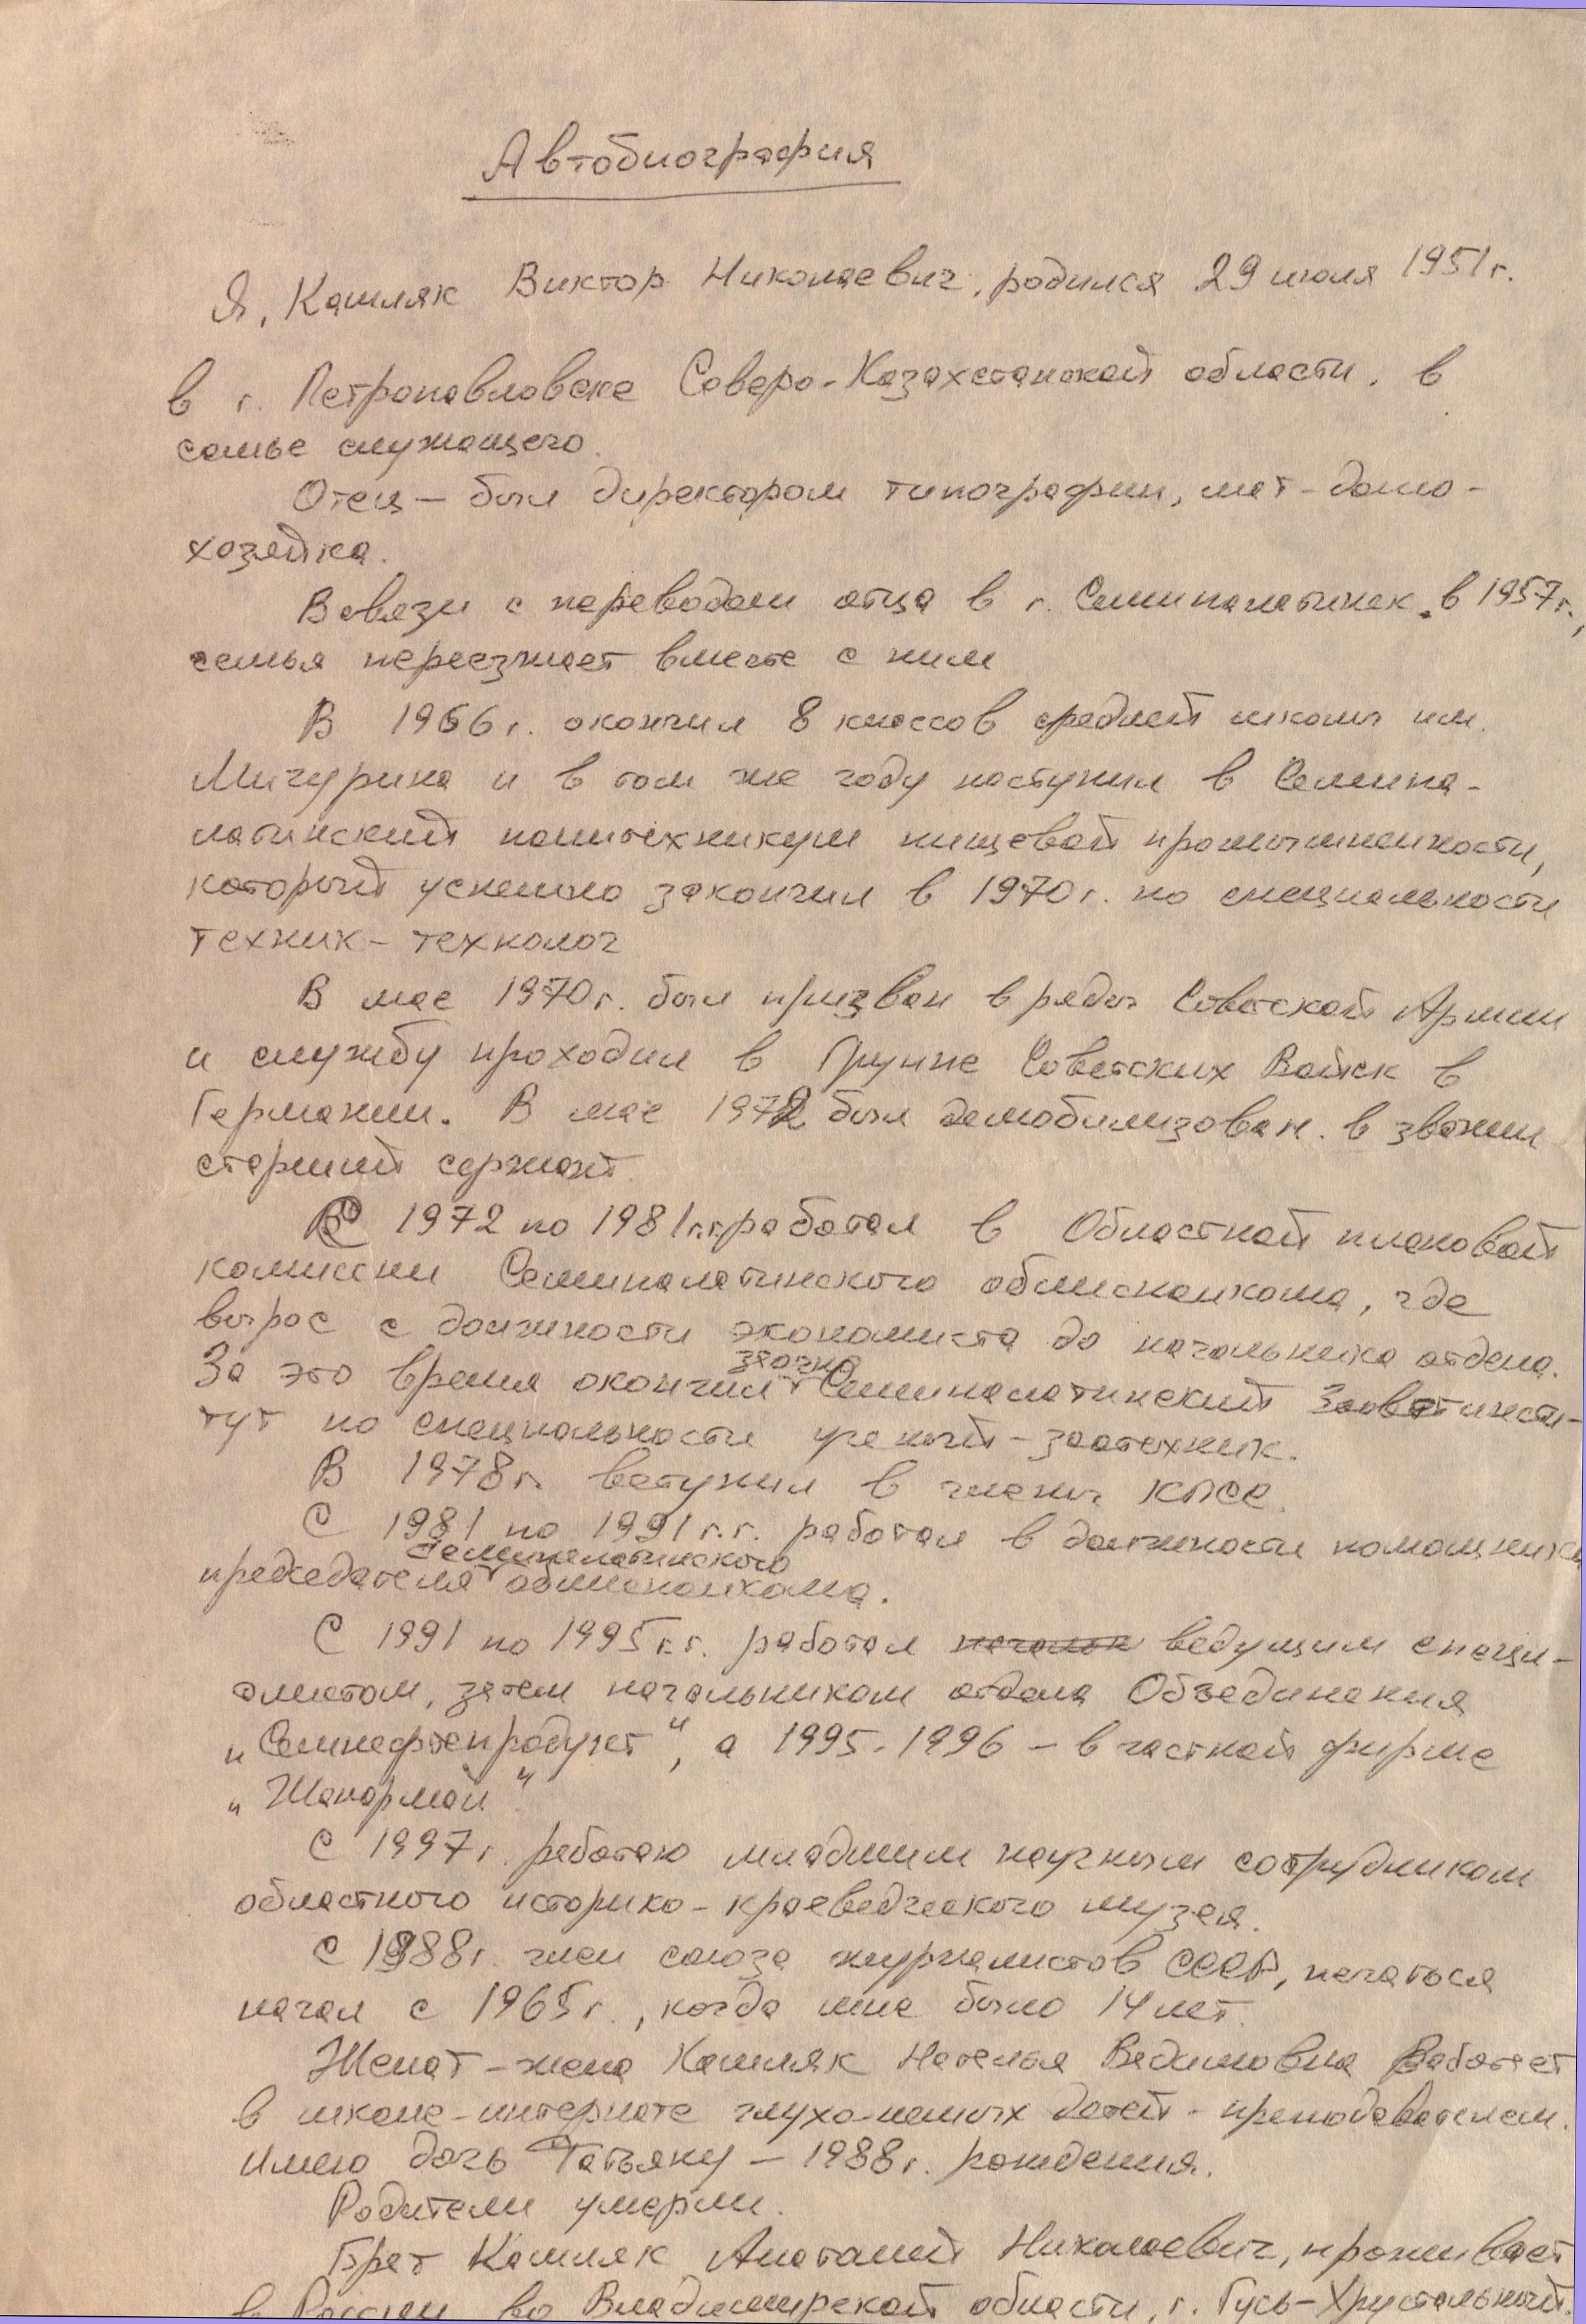 Автобиография
Я, Кашляк Виктор Николаевич, родился 29 июля 1951 г.
в г. Петропавловске Северо-Казахстанской области, в
семье служащего.
Отец – был директором типографии, мат – домо-
хозяйка.
В связи с переводом отца в г. Семипалатинск в 1957 г.,
семья переезжает вместе с ним
В 1966 г. окончил 8 классов средней школы им.
Мичурина и в том же году поступил в Семипа-
латинский политехникум пищевой промышленности,
который успешно закончил в 1970 г. по специальности
техник-технолог
В мае 1970 г. был призван в ряды Советской Армии
и службу проходил в Группе Советских Войск в
Германии. В мае 1972 был демобилизован в звании
старший сержант.
С 1972 по 1981 г.г. работал в Областной плановой
комиссии Семипалатинского облисполкома, где
вырос с должности экономиста до начальника отдела.
За это время окончил заочно Семипалатинский Зооветинсти-
тут по специальности ученый-зоотехник.
В 1978 г. вступил в члены КПСС.
С 1981 по 1991 г.г. работал в должности помощника
председателя Семипалатинского облисполкома.
С 1991 по 1995 г.г. работал начальн ведущим специ-
алистом, затем начальником отдела Объединения
„Семнефтепродукт", а 1995-1996 – в частной фирме
„Жанармай".
С 1997 г. работаю младшим научным сотрудником
областного историко-краеведческого музея.
С 1988 г. член союза журналистов СССР, печатося
начал с 1965 г., когда мне было 14 лет.
Женат – жена Кашляк Наталья Вадимовна работает
в школе-интернате глухо-немых детей - преподавателем.
Имею дочь Татьяну – 1988 г. рождения.
Родители умерли.
Брат Кашляк Анатолий Николаевич, проживает
в России во Владимирской области, г. Гусь-Хрустальный.